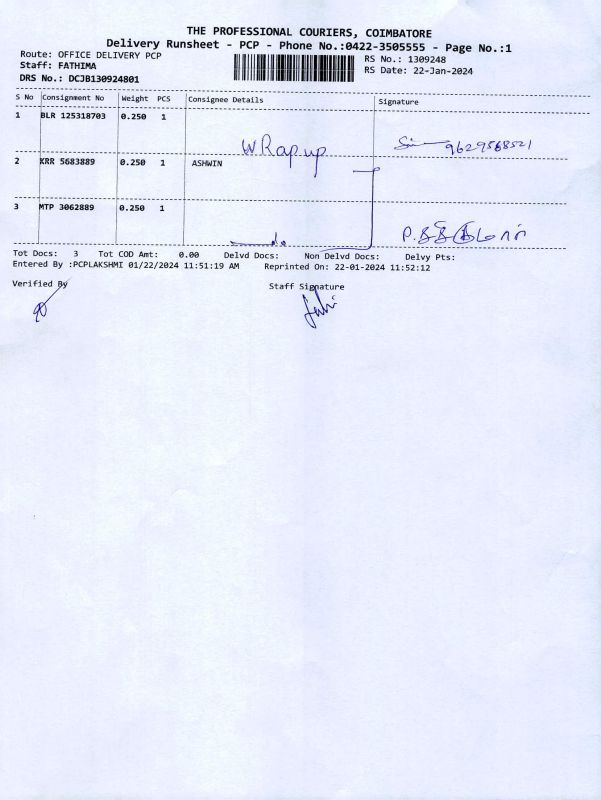 THE PROFESSIONAL COURIERS, COIMBATORE
Delivery Runsheet - PCP - Phone No.:0422-3505555 - Page No.:1
Route: OFFICE DELIVERY PCP
Staff: FATHIMA
DRS No.: DCJB130924801
RS No.: 1309248
RS Date: 22-Jan-2024
S No Consignment No Weight PCS Consignee Details Signature
1 BLR 125318703 0.250 1
WRapup 9629568521
2 KRR 5683889 0.250 1 ASHWIN
3 MTP 3062889 0.250 1
Tot Docs: 3 Tot COD Amt: 0.00 Delvd Docs: Non Delvd Docs: Delvy Pts:
Entered By :PCPLAKSHMI 01/22/2024 11:51:19 AM Reprinted On: 22-01-2024 11:52:12
Verified By Staff Signature